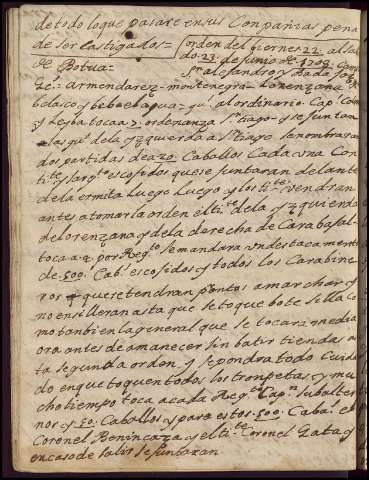 de todo lo que pasare en sus Conpañias pena
de ser Castigados = orden del Viernes 22 al Sa
do. 23 de junio de 1708 Camp
de Botua =
Sn alejandro y Bada Joz
Ge: armendarez - montenegra - Lorenzana
belasco y beba el agua - gu. al ordinario. Capn
y Leyba toca a 7 ordenanza Stiago - y se juntan
a las gu. de la yzquierda a Stiago se nombraran
dos partidas de a 20: Caballos Cada una Con
tite y sargto escojidos que se juntaran delante
de la ermita luego luego y los tites vendran
antes a tomar la orden el tite de la yzquierda
de lorenzana y de la derecha de Carabajal -
toca a 2 por Regto se mandara un destacamento
de 500 Cabs escojidos y todos los Carabine
ros que se tendran prontos a marchar y
no ensilleran asta que se toque bote sella Co
mo tanbien la general que se tocara media
ora antes de amanecer sin batir tiendas as
ta segunda orden, y se pondra todo Cuida
do en que toquen todos los tronpetas y mu
cho tiempo toca a cada Regto Capn subalter
nos y 50 Caballos y para estos 500 Cabs el
Coronel Benincaza y el tite Coronel Zata y
en caso de salir se juntaran